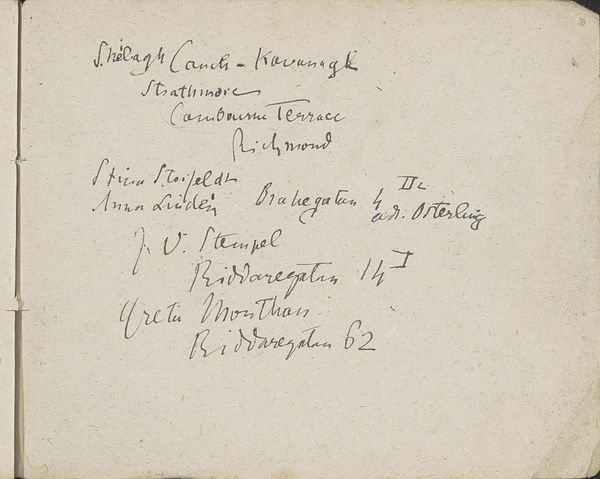 38
Shélagh Couch - Kavanagh
Strathmore
Cambourne Terrace
Richmond
Stina
Anna Lindén Brahegatan 4 II
adr. Österling
J. V. Stempel
Riddaregatan 14 I
Greta Monthan
Riddaregatan 62